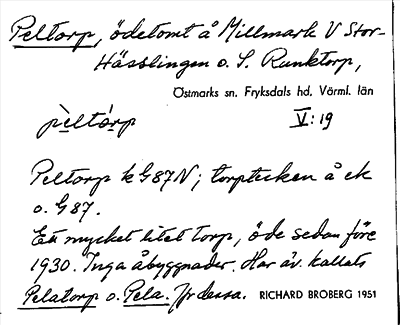 Peltorp, ödetomt å Millmark V Stor-
Hässlingen o. S. Runktorp,
Östmarks sn. Fryksdals hd. Värml. län
pèltár̀p V:19
Peltorp k G87N; torptecken å ek
o. G87.
Ett mycket litet torp, öde sedan före
1930. Inga åbyggnader. Har äv. kallats
Pelatorp o. Pela. Jfr dessa. RICHARD BROBERG 1951